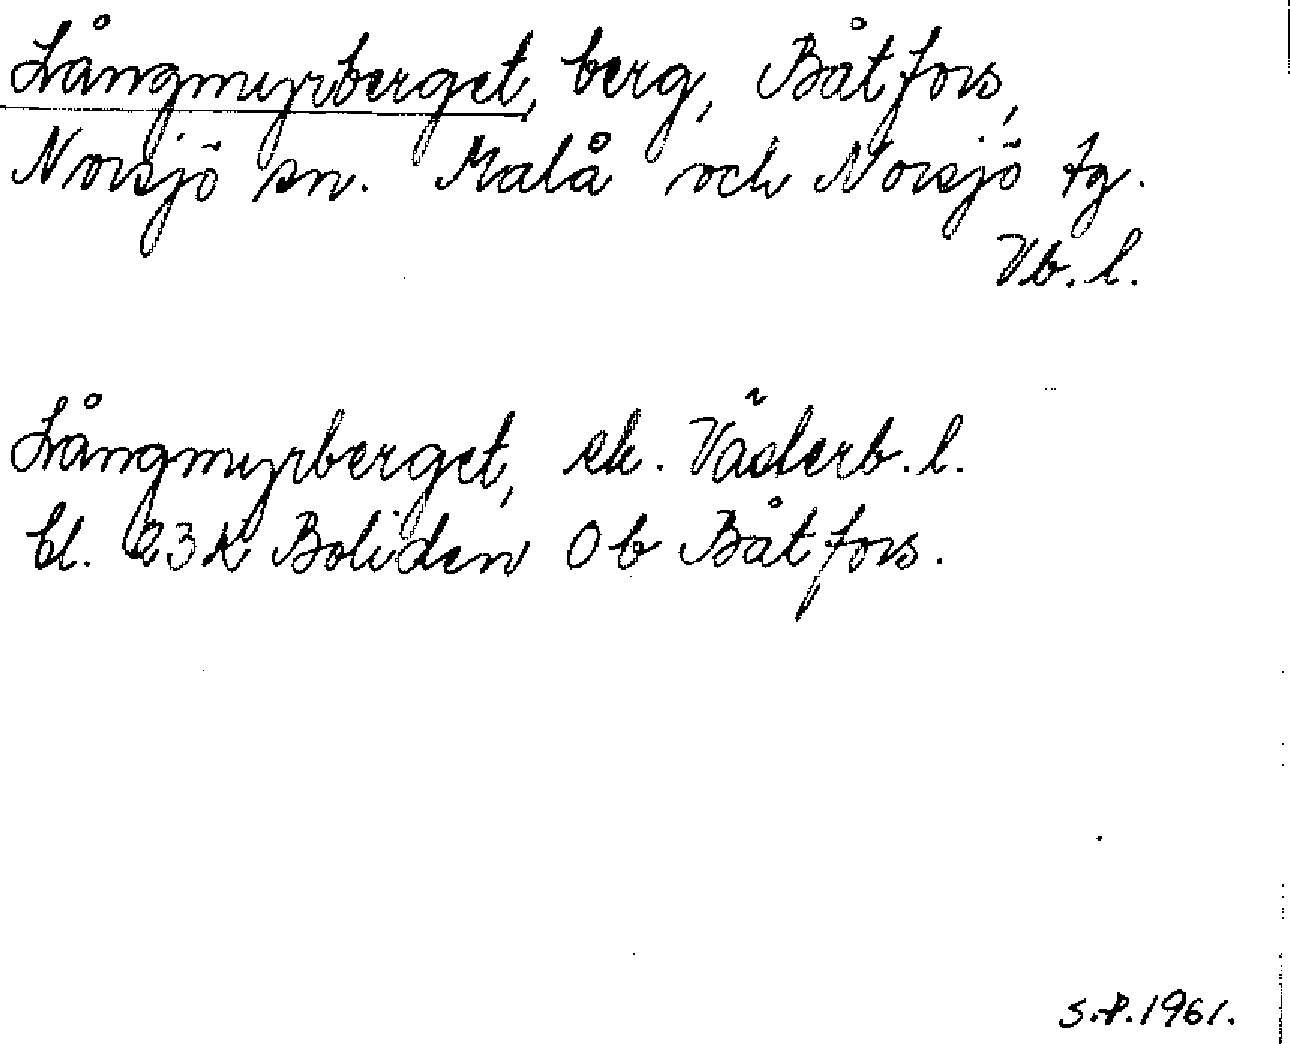 Långmyrberget, berg, Båtfors,
Norsjö sn. Malå och Norsjö tg.
Vb. l.
Långmyrberget, ek. Väderb. l.
bl. 23K Boliden Ob Båtfors.
S.P. 1961.